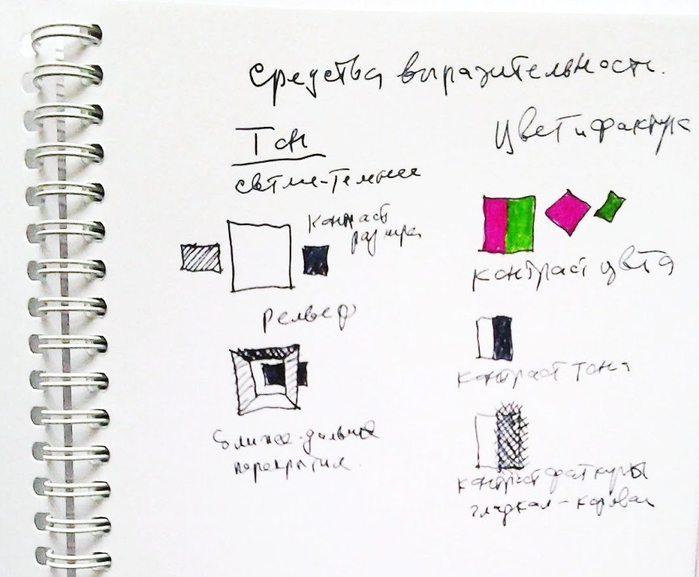 Средства выразительности.
Тон
светлее-темнее
контраст
размера
Рельеф
ближе-дальше
перекрытия.
Цвет и фактура
контраст цвета
контраст тона
контраст фактуры
гладкая-корявая